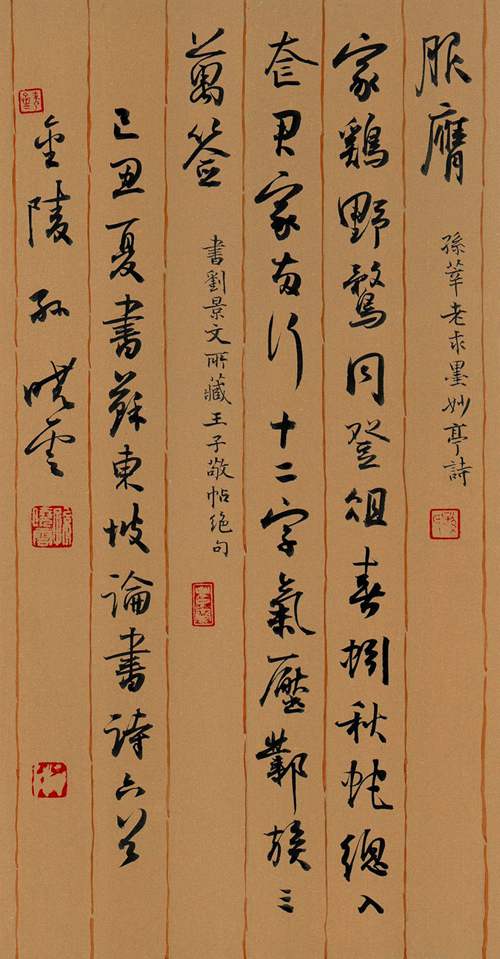 服膺 孫莘老求墨妙亭詩
家鷄野鶩同登俎春蚓秋蛇總入
奩君家兩行十二字氣壓鄴侯三
萬签 書劉景文所藏王子敬帖绝句
己丑夏書蘇東坡論書詩六首
金陵孫曉雲